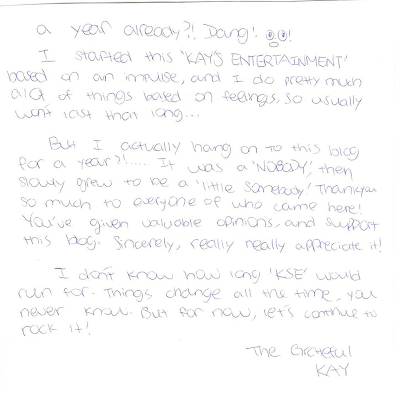 a year already?! Dang!
I started this 'KAY'S ENTERTAINMENT'
based on an impulse, and I do pretty much
alot of things based on feelings, so usually
won't last that long...
But I actually hang on to this blog
for a year?!..... It was a 'NOBODY', then
slowly grew to be a 'little somebody'! Thankyou
so much to everyone of who came here!
You've given valuable opinions, and support
this blog. Sincerely, really really appreciate it!
I don't know how long 'KSE' would
run for. Things change all the time, you
never know. But for now, let's continue to
rock it!
The Grateful
KAY